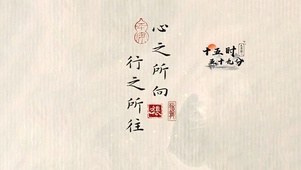 心之所向
行之所往
十五时
五十九分